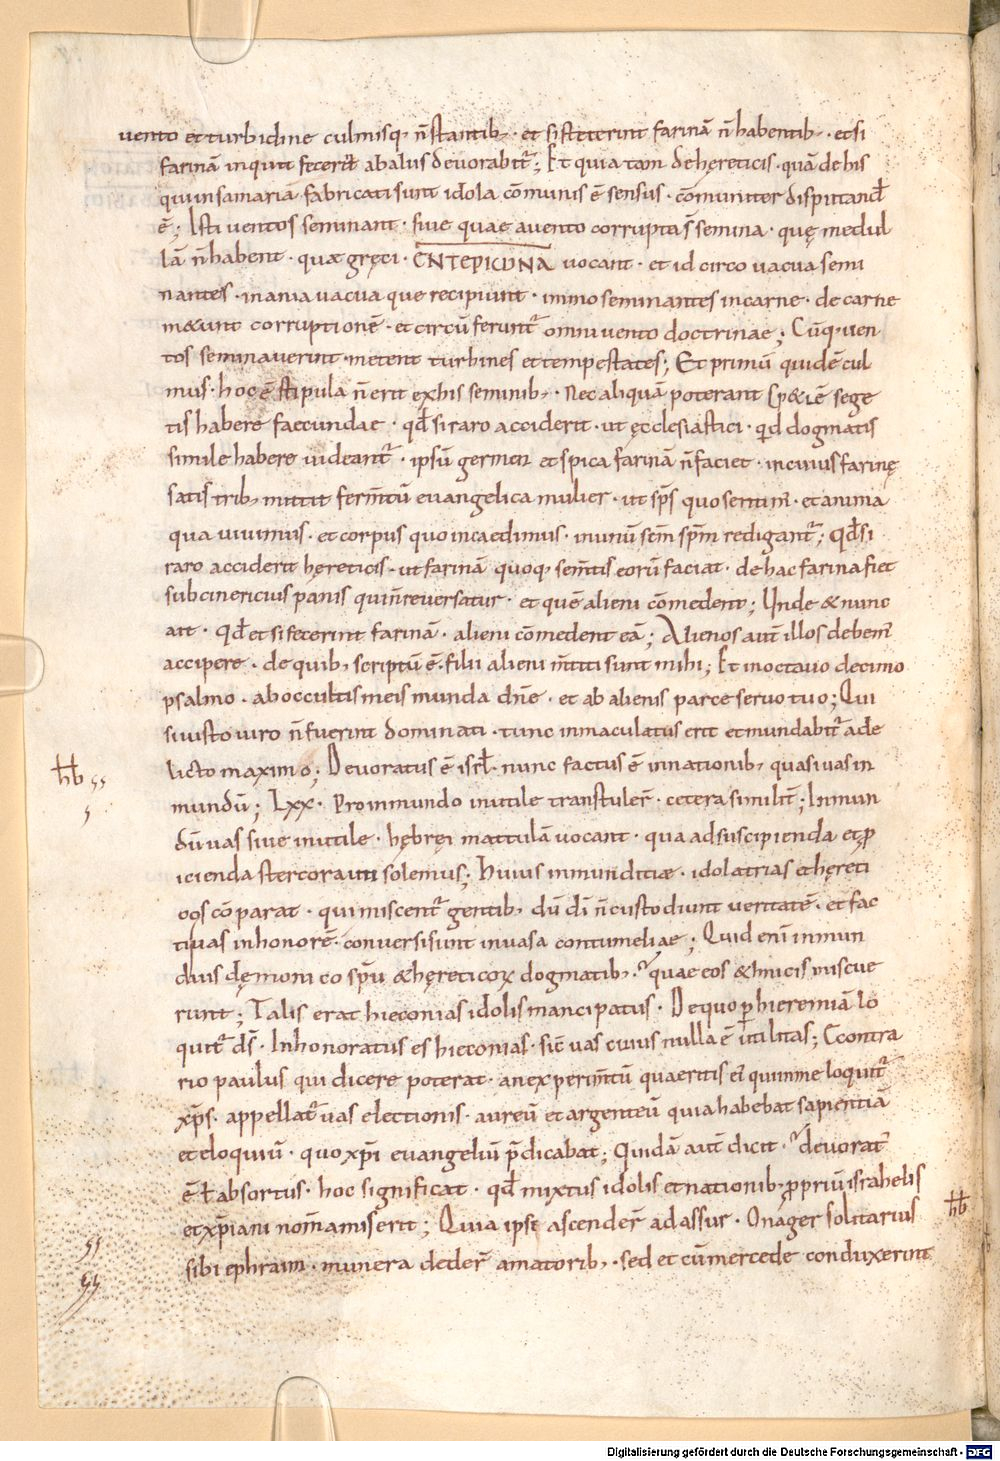 vento et turbidine culmisq; n̄ stantib; · et si steterint farinā n̄ habentib; · et si
farinā inquit fecerit ab aliis devorabit᷑; Et quia tam de hęreticis · quā de his
qui in samariā fabricati sunt idola cōmunis ē sensus · cōmuniter disputand̄
ē; Isti ventos seminant · sive quae a vento corrupta s̄ semina · quę medul
lā n̄ habent · quae gręci · ΕΝΤΕΡΙωΝΑ vocant · et id circo vacua semi
nantes · inania vacua que recipiunt · immo seminantes in carne · de carne
m&unt corruptionē · et circū ferunt᷑ omni vento doctrinae; Cūq; ven
tos seminaverint · metent turbines et tempestates; Et primū quidē cul
mus · hoc ē stipula n̄ erit ex his seminib; · Nec aliquā poterant sp&iē sege
tis habere faecundae · qd̄ si raro acciderit · ut ęcclesiastici · qid dogmatis
simile habere videant᷑ · ipsū germen et spica farinā n̄ faciet · in cuius farinę
satis trib; mittit ferm̄tū evangelica mulier · ut sp̄s quo sentim᷒ · et anima
qua vivimus · et corpus quo incaedimus · in unū sem̄ sp̄m redigant᷑; Qd̄ si
raro acciderit hęreticis · ut farinā quoq; sem̄tis eorū faciat · de hac farina fiet
subcinericius panis qui n̄ reversatur · et quē alieni cōmedent; Unde & nunc
ait · Qd̄ et si fecerint farinā · alieni cōmedent eā; Alienos aut̄ illos debem᷒
accipere · de quib; scriptū ē · filii alieni m̄titi sunt mihi; Et in octavo decimo
psalmo · ab occultis meis munda me dn̄e · et ab alienis parce servo tuo; Qui
si iusto viro n̄ fuerint dominati · tunc inmaculatus erit et mundabit᷑ a de
licto maximo; Devoratus ē isrl̄ · nunc factus ē in nationib; quasi vas in
mundū; Lxx · Pro inmundo inutile transtuler̄ · cetera similit̄; Inmun
dū vas sive inutile · hębręi mattulā vocant · qua ad suscipienda et ꝓ
icienda stercora uti solemus; Huius inmunditiae · idolatrias et hęreti
cos cōparat · qui miscent᷑ gentib; dū dī n̄ custodiunt veritatē · et fac
ti vas in honorē · conversi sunt in vasa contumeliae; Quid enī inmun
dius dęmoniaco sp̄u & hęreticoꝝ dogmatib; · quae eos & hnicis miscue
runt; Talis erat hieconias idolis mancipatus · De quo ꝑ hieremiā lo
quit᷑ ds̄ · Inhonoratus es hieconias · sic̄ vas cuius nulla ē utilitas; Econtra
rio paulus qui dicere poterat · an experim̄tū quaeritis ei᷒ qui in me loquit᷑
xp̄s · appellat᷑ vas electionis · aureū et argenteū quia habebat sapientiā
et eloquiū · quo xp̄i evangeliū p̄dicabat; Quidā aut̄ dicit · devorat᷒
ē ł absortus · hoc significat · qd̄ mixtus idolis et nationib; ꝓpriū israhelis
et xp̄iani nom̄ amiserit; Quia ipsi ascender̄ ad assur · Onager solitarius
sibi ephraim · munera deder̄ amatorib; · sed et cū mercede conduxerint
hb
hb
Digitalisierung gefördert durch die Deutsche Forschungsgemeinschaft - DFG